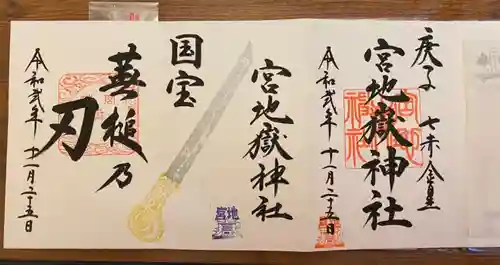 庚子 七赤金星
宮地嶽神社
令和弐年 十一月二十五日
宮地嶽神社
国宝
蕪槌乃
刃
令和弐年 十一月二十五日
宮地嶽